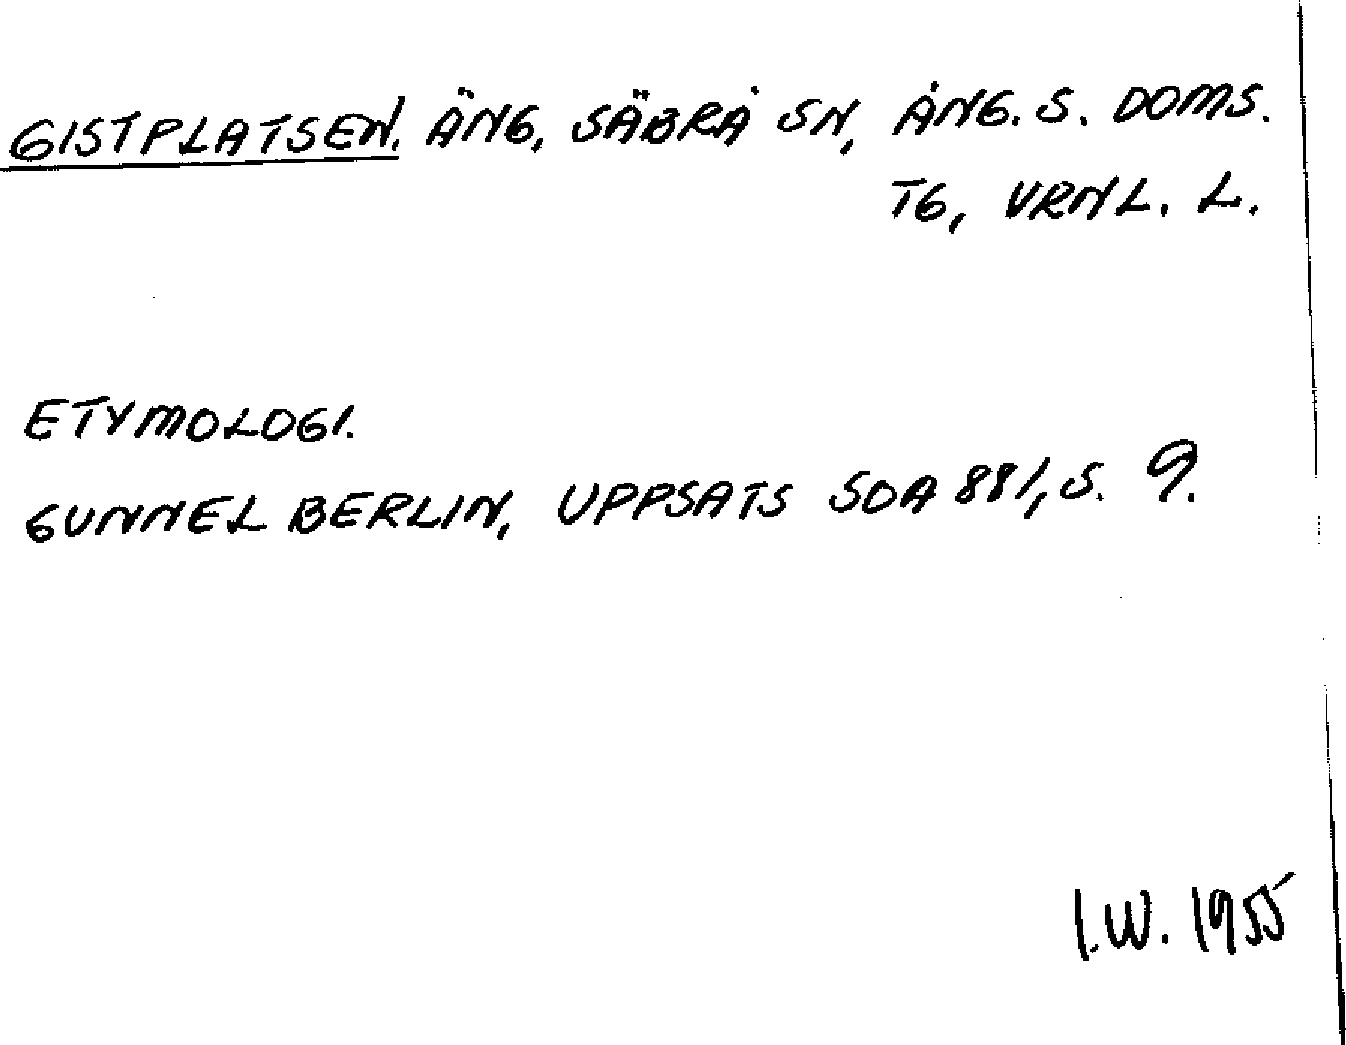 GISTPLATSEN. ÄNG, SÄBRÅ SN, ÅNG. S. DOMS.
TG, VRNL. L.
ETYMOLOGI.
GUNNEL BERLIN, UPPSATS SOA 881, S. 9.
I.W. 1955